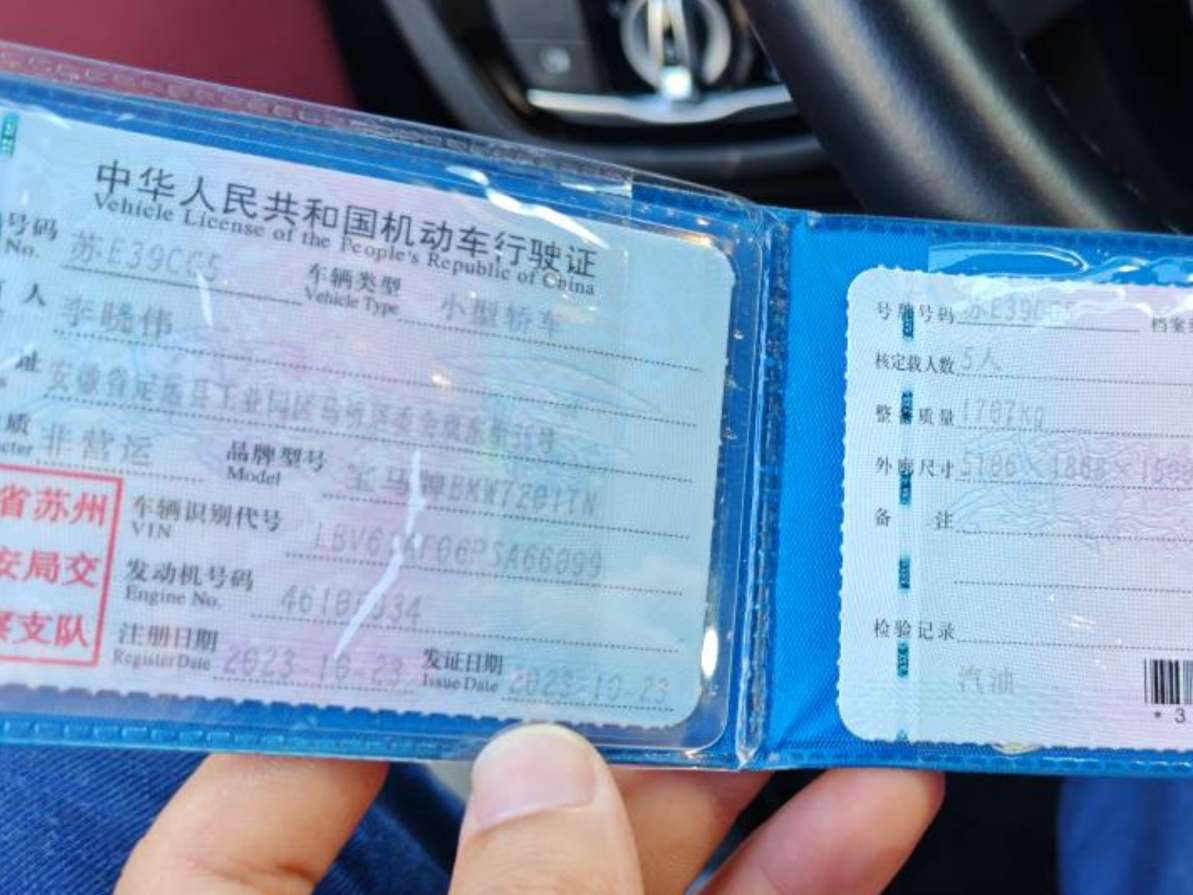 中华人民共和国机动车行驶证
Vehicle License of the People's Republic of China
号码 苏E39CC5 车辆类型 小型轿车
No. Vehicle Type
人 李晓伟
址 安徽省定远县工业园区
质 非营运 品牌型号 宝马牌BMW7201TN
Model
省苏州
安局交
察支队
车辆识别代号
VIN
发动机号码
Engine No.
注册日期 2023-10-23 发证日期 2023-10-23
Register Date Issue Date
号牌号码 苏E39CC5 档案
核定载人数 5人
整备质量 1707kg
外廓尺寸 5106×1868×1500
备 注
检验记录
汽油
* 3